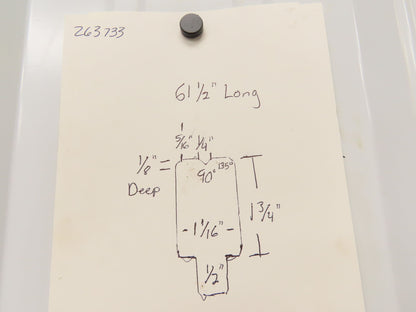 263733
61 1/2" Long
5/16" 1/4"
1/8"
Deep
90° 135°
1 3/4"
1 1/16"
1/2"